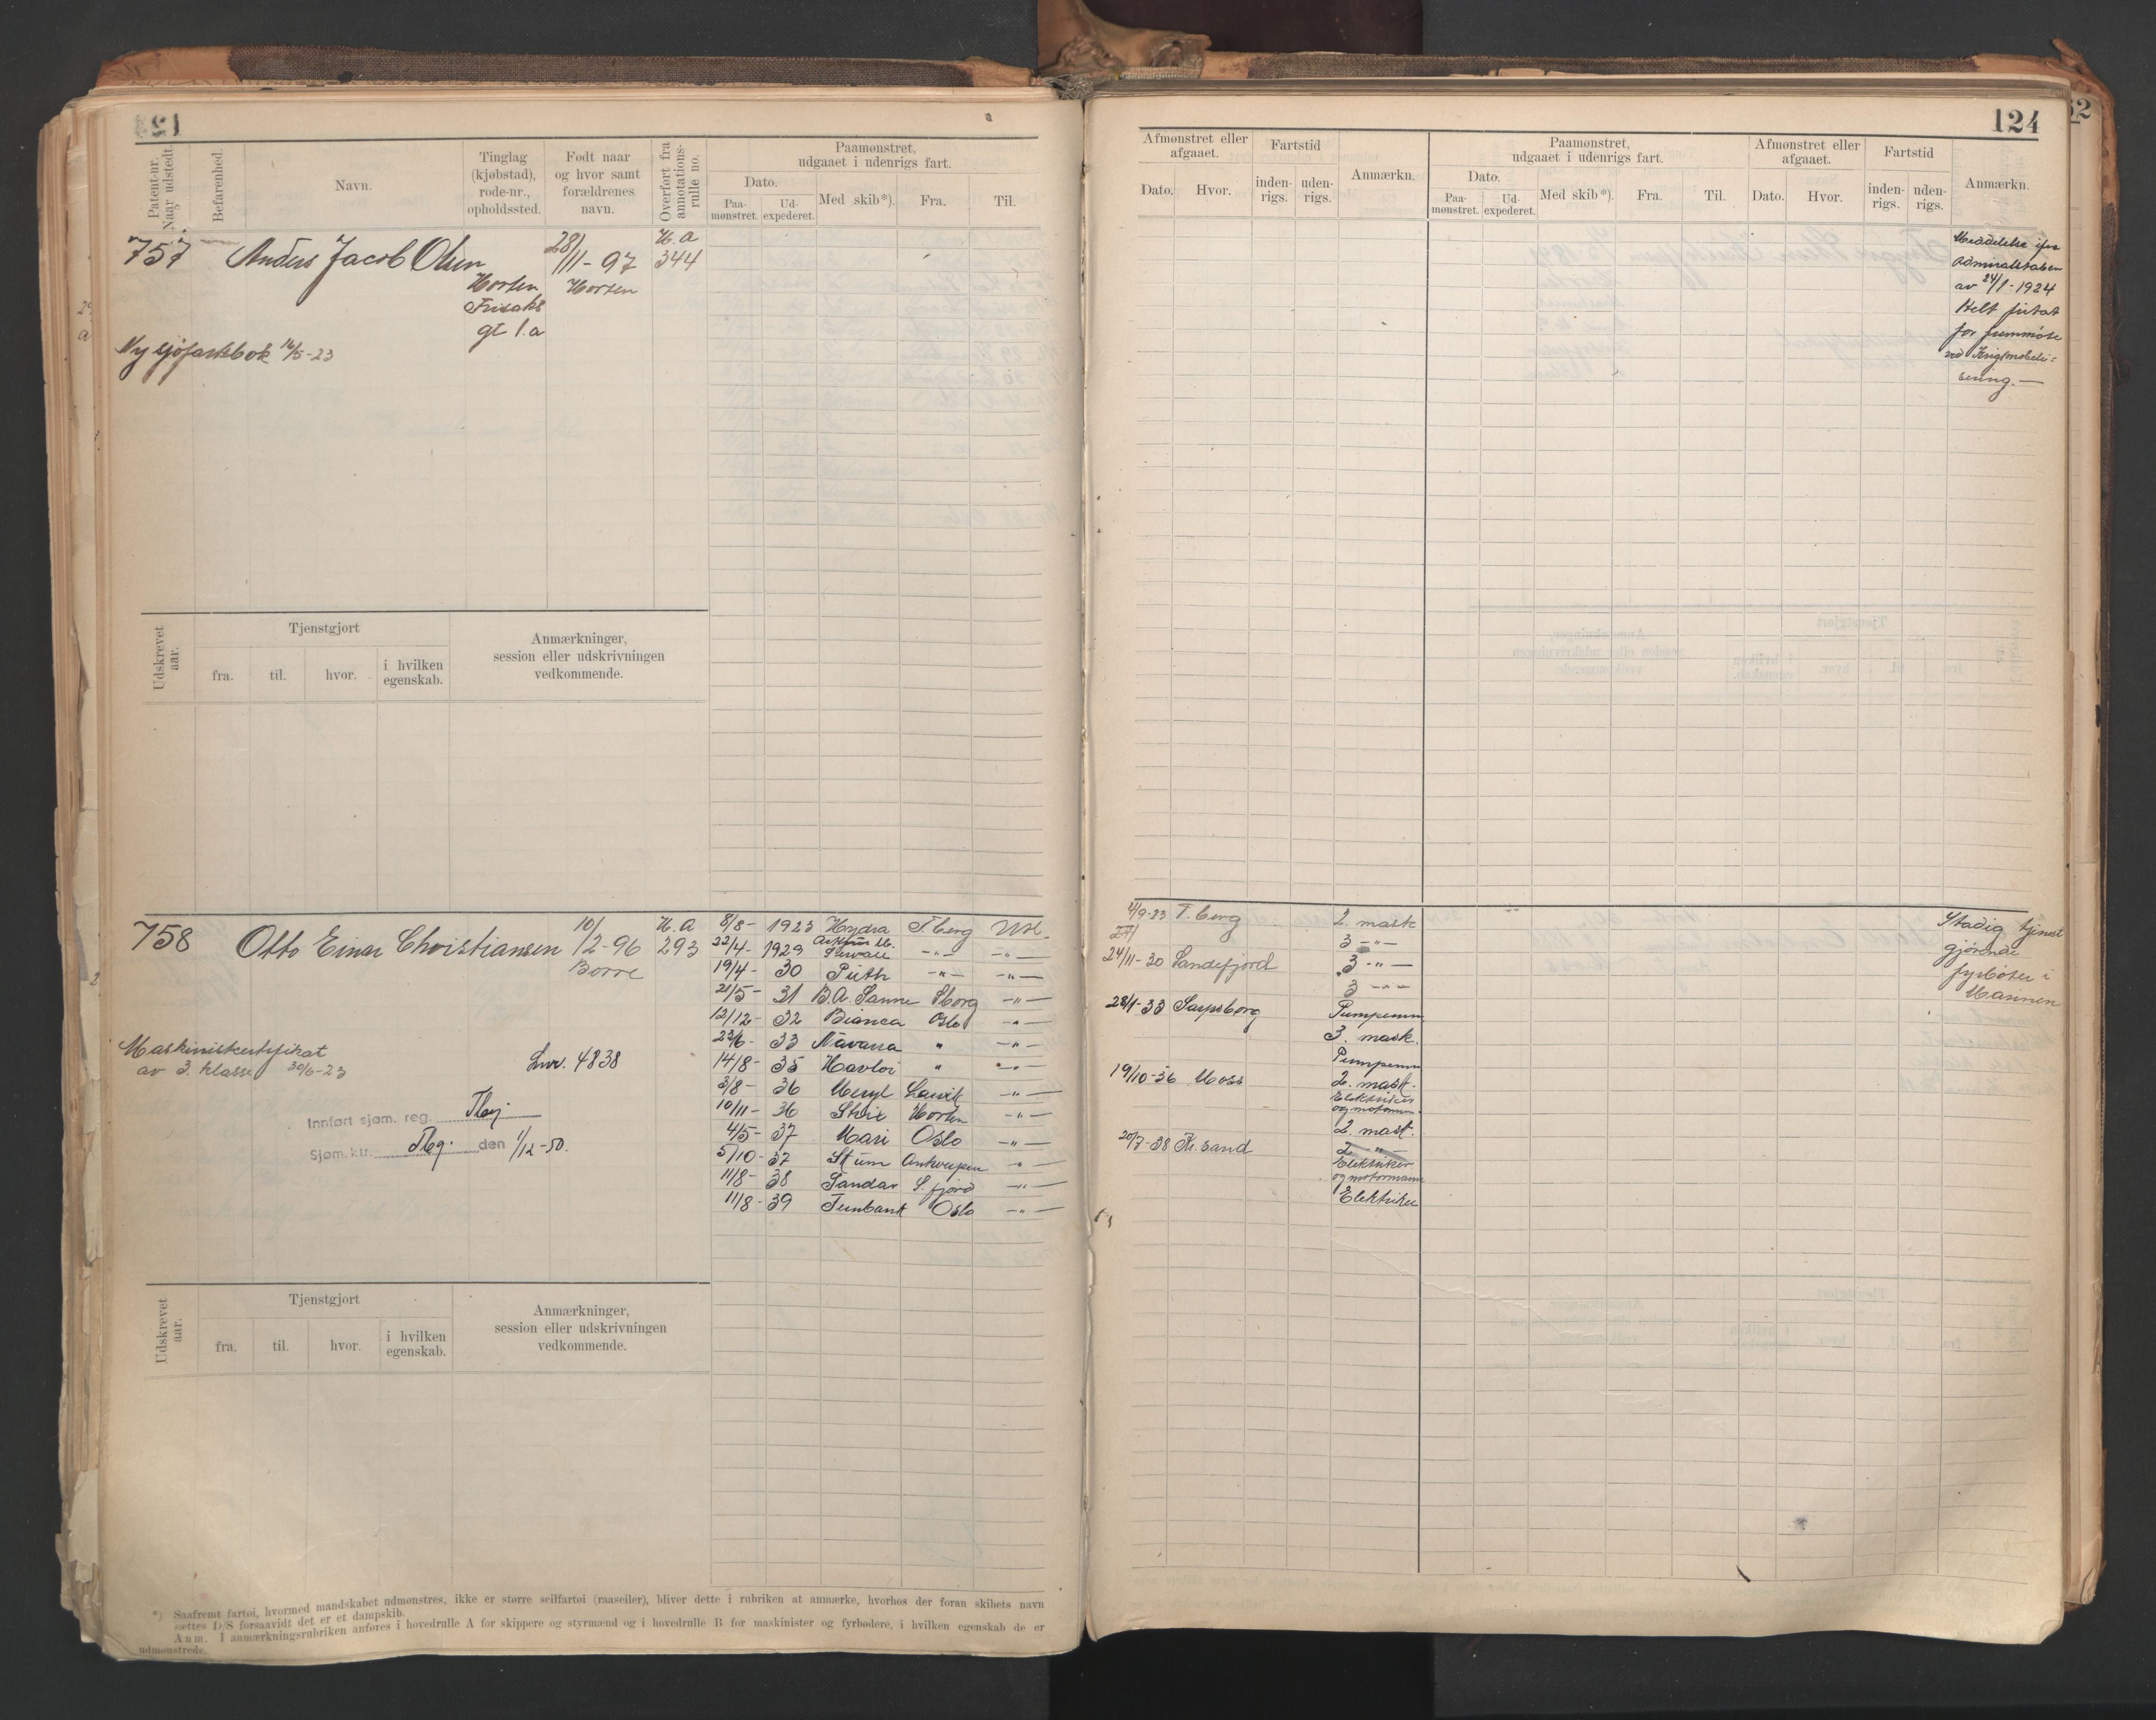 124
Patent-nr.
Naar udstedt.
Befarenhed.
Navn.
Tinglag
(kjøbstad),
rode-nr.,
opholdssted.
Født naar
og hvor samt
forældrenes
navn.
Overført fra
annotations-
rulle no.
Paamønstret,
udgaaet i udenrigs fart.
Dato.
Paa-
mønstret.
Ud-
expederet.
Med skib*).
Fra.
Til.
757
Anders Jacob Olsen
Horten
gt 1.a
28/
11-97
Horten
H.a
344
Ny sjøfartsbok 16/5-23
Udskrevet
aar.
Tjenstgjort
fra.
til.
hvor.
i hvilken
egenskab.
Anmærkninger,
session eller udskrivningen
vedkommende.
758
Otto Einar Christiansen
10/
12-96
Borre
H.a
293
Maskinistcertifikat
av 3. klasse 30/6-23
Lnr. 4838
Innført sjøm. reg. Tbg
Sjøm.ktr. Tbg. den 1/12-50.
8/8- 1923 Hydra T.berg Utl.
22/4- 1929 -"- -"-
19/4- 30 -"- -"-
21/5- 31 B.A. Sanne Sborg -"-
12/12- 32 Bianca Oslo -"-
23/6- 33 Navarra " -"-
14/8- 35 Havloi " -"-
3/8- 36 Meryl Larvik -"-
10/11- 36 Horten -"-
4/5- 37 Mari Oslo -"-
5/10- 37 Antwerpen -"-
11/8- 38 Sandar S.fjord -"-
11/8- 39 Oslo -"-
Udskrevet
aar.
Tjenstgjort
fra.
til.
hvor.
i hvilken
egenskab.
Anmærkninger,
session eller udskrivningen
vedkommende.
*) Saafremt fartøi, hvormed mandskabet udmønstres, ikke er større seilfartøi (raaseiler), bliver dette i rubriken at anmærke, hvorhos der foran skibets navn
sættes D/S forsaavidt det er et dampskib.
Anm. I anmærkningsrubriken anføres i hovedrulle A for skippere og styrmænd og i hovedrulle B for maskinister og fyrbødere, i hvilken egenskab de er
udmønstrede.
Afmønstret eller
afgaaet.
Dato.
Hvor.
Fartstid
inden-
rigs.
uden-
rigs.
Anmærkn.
Paamønstret,
udgaaet i udenrigs fart.
Dato.
Paa-
mønstret.
Ud-
expederet.
Med skib*).
Fra.
Til.
Afmønstret eller
afgaaet.
Dato.
Hvor.
Fartstid
inden-
rigs.
uden-
rigs.
Anmærkn.
Meddelelse fra
Admiralstaben
av 24/1-1924
Helt fritat
for fremmøte
ved Krigsmobili=
sering.—
T.berg 2. mask
3 -"-
24/11-30 Sandefjord 3 -"-
3 -"-
28/1-33 Sarpsborg Pumpemm
3. mask.
Pumpemm
19/10-36 Moss 2. mask.
Elektriker
og motorm.
2. mask.
20/7-38 Kr.sand 2 -"-
Elektriker
og motormann
Elektriker
Stadig tjenest
gjørende
fyrbøter i
Marinen